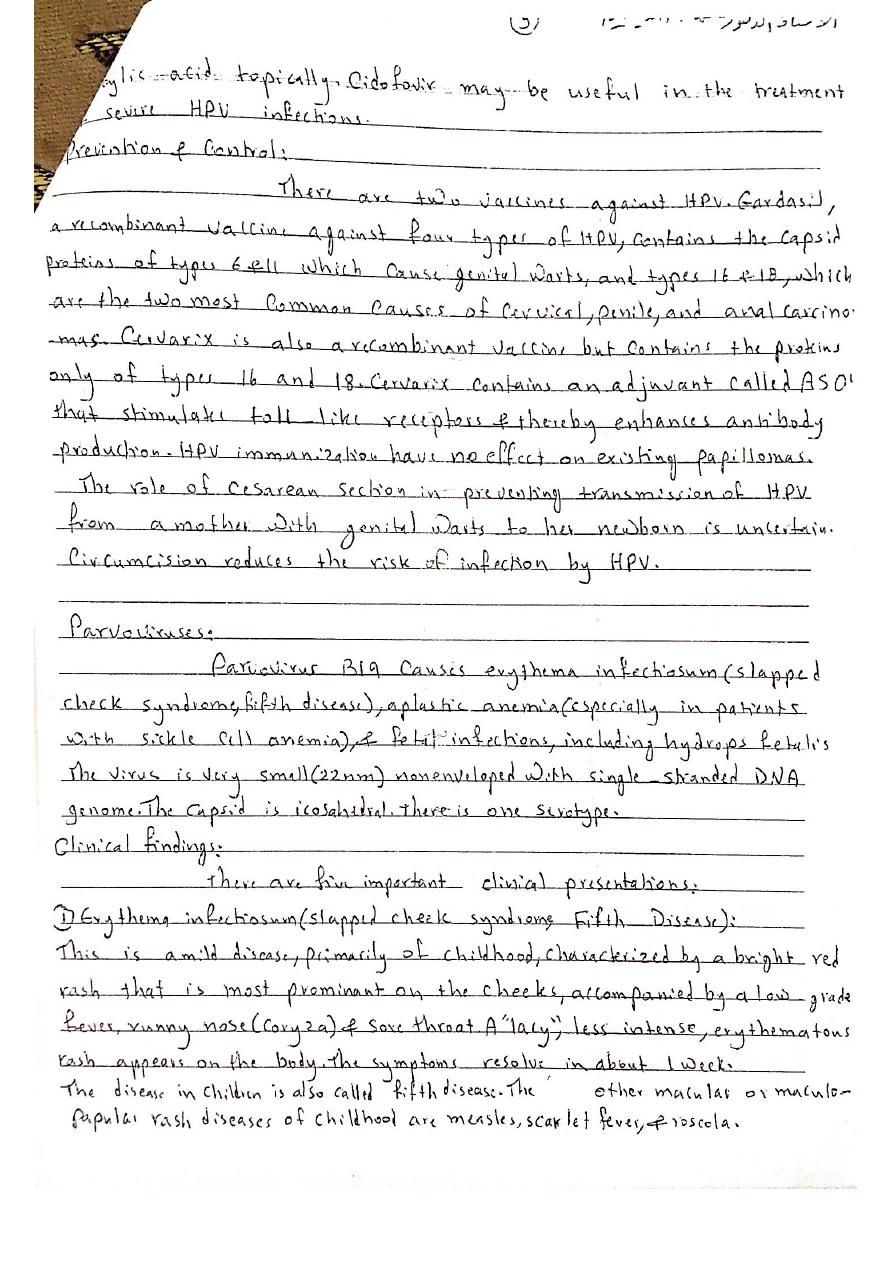 الأستاذ الدكتور
ylic acid topically. Cidofovir may be useful in the treatment
severe HPV infections.
Prevention & Control:
There are two vaccines against HPV. Gardasil,
a recombinant vaccine against four types of HPV, contains the capsid
proteins of types 6 & 11 which cause genital warts, and types 16 & 18, which
are the two most common causes of cervical, penile, and anal carcino-
-mas. Cervarix is also a recombinant vaccine but contains the proteins
only of types 16 and 18. Cervarix contains an adjuvant called ASO'
that stimulates toll-like receptors & thereby enhances antibody
production. HPV immunization have no effect on existing papillomas.
The role of Cesarean section in preventing transmission of HPV
from a mother with genital warts to her newborn is uncertain.
Circumcision reduces the risk of infection by HPV.
Parvoviruses:
Parvovirus B19 causes erythema infectiosum (slapped
check syndrome, fifth disease), aplastic anemia (especially in patients
with sickle cell anemia), & fetal infections, including hydrops fetalis
The virus is very small (22nm) nonenveloped with single-stranded DNA
genome. The capsid is icosahedral. There is one serotype.
Clinical findings:
There are five important clinical presentations:
1) Erythema infectiosum (slapped check syndrome, Fifth Disease):
This is a mild disease, primarily of childhood, characterized by a bright red
rash that is most prominant on the cheeks, accompanied by a low grade
fever, runny nose (coryza) & sore throat A "lacy", less intense, erythematous
rash appears on the body. The symptoms resolve in about 1 week.
The disease in children is also called fifth disease. The other macular or maculo-
papular rash diseases of childhood are measles, scarlet fever, & roseola.